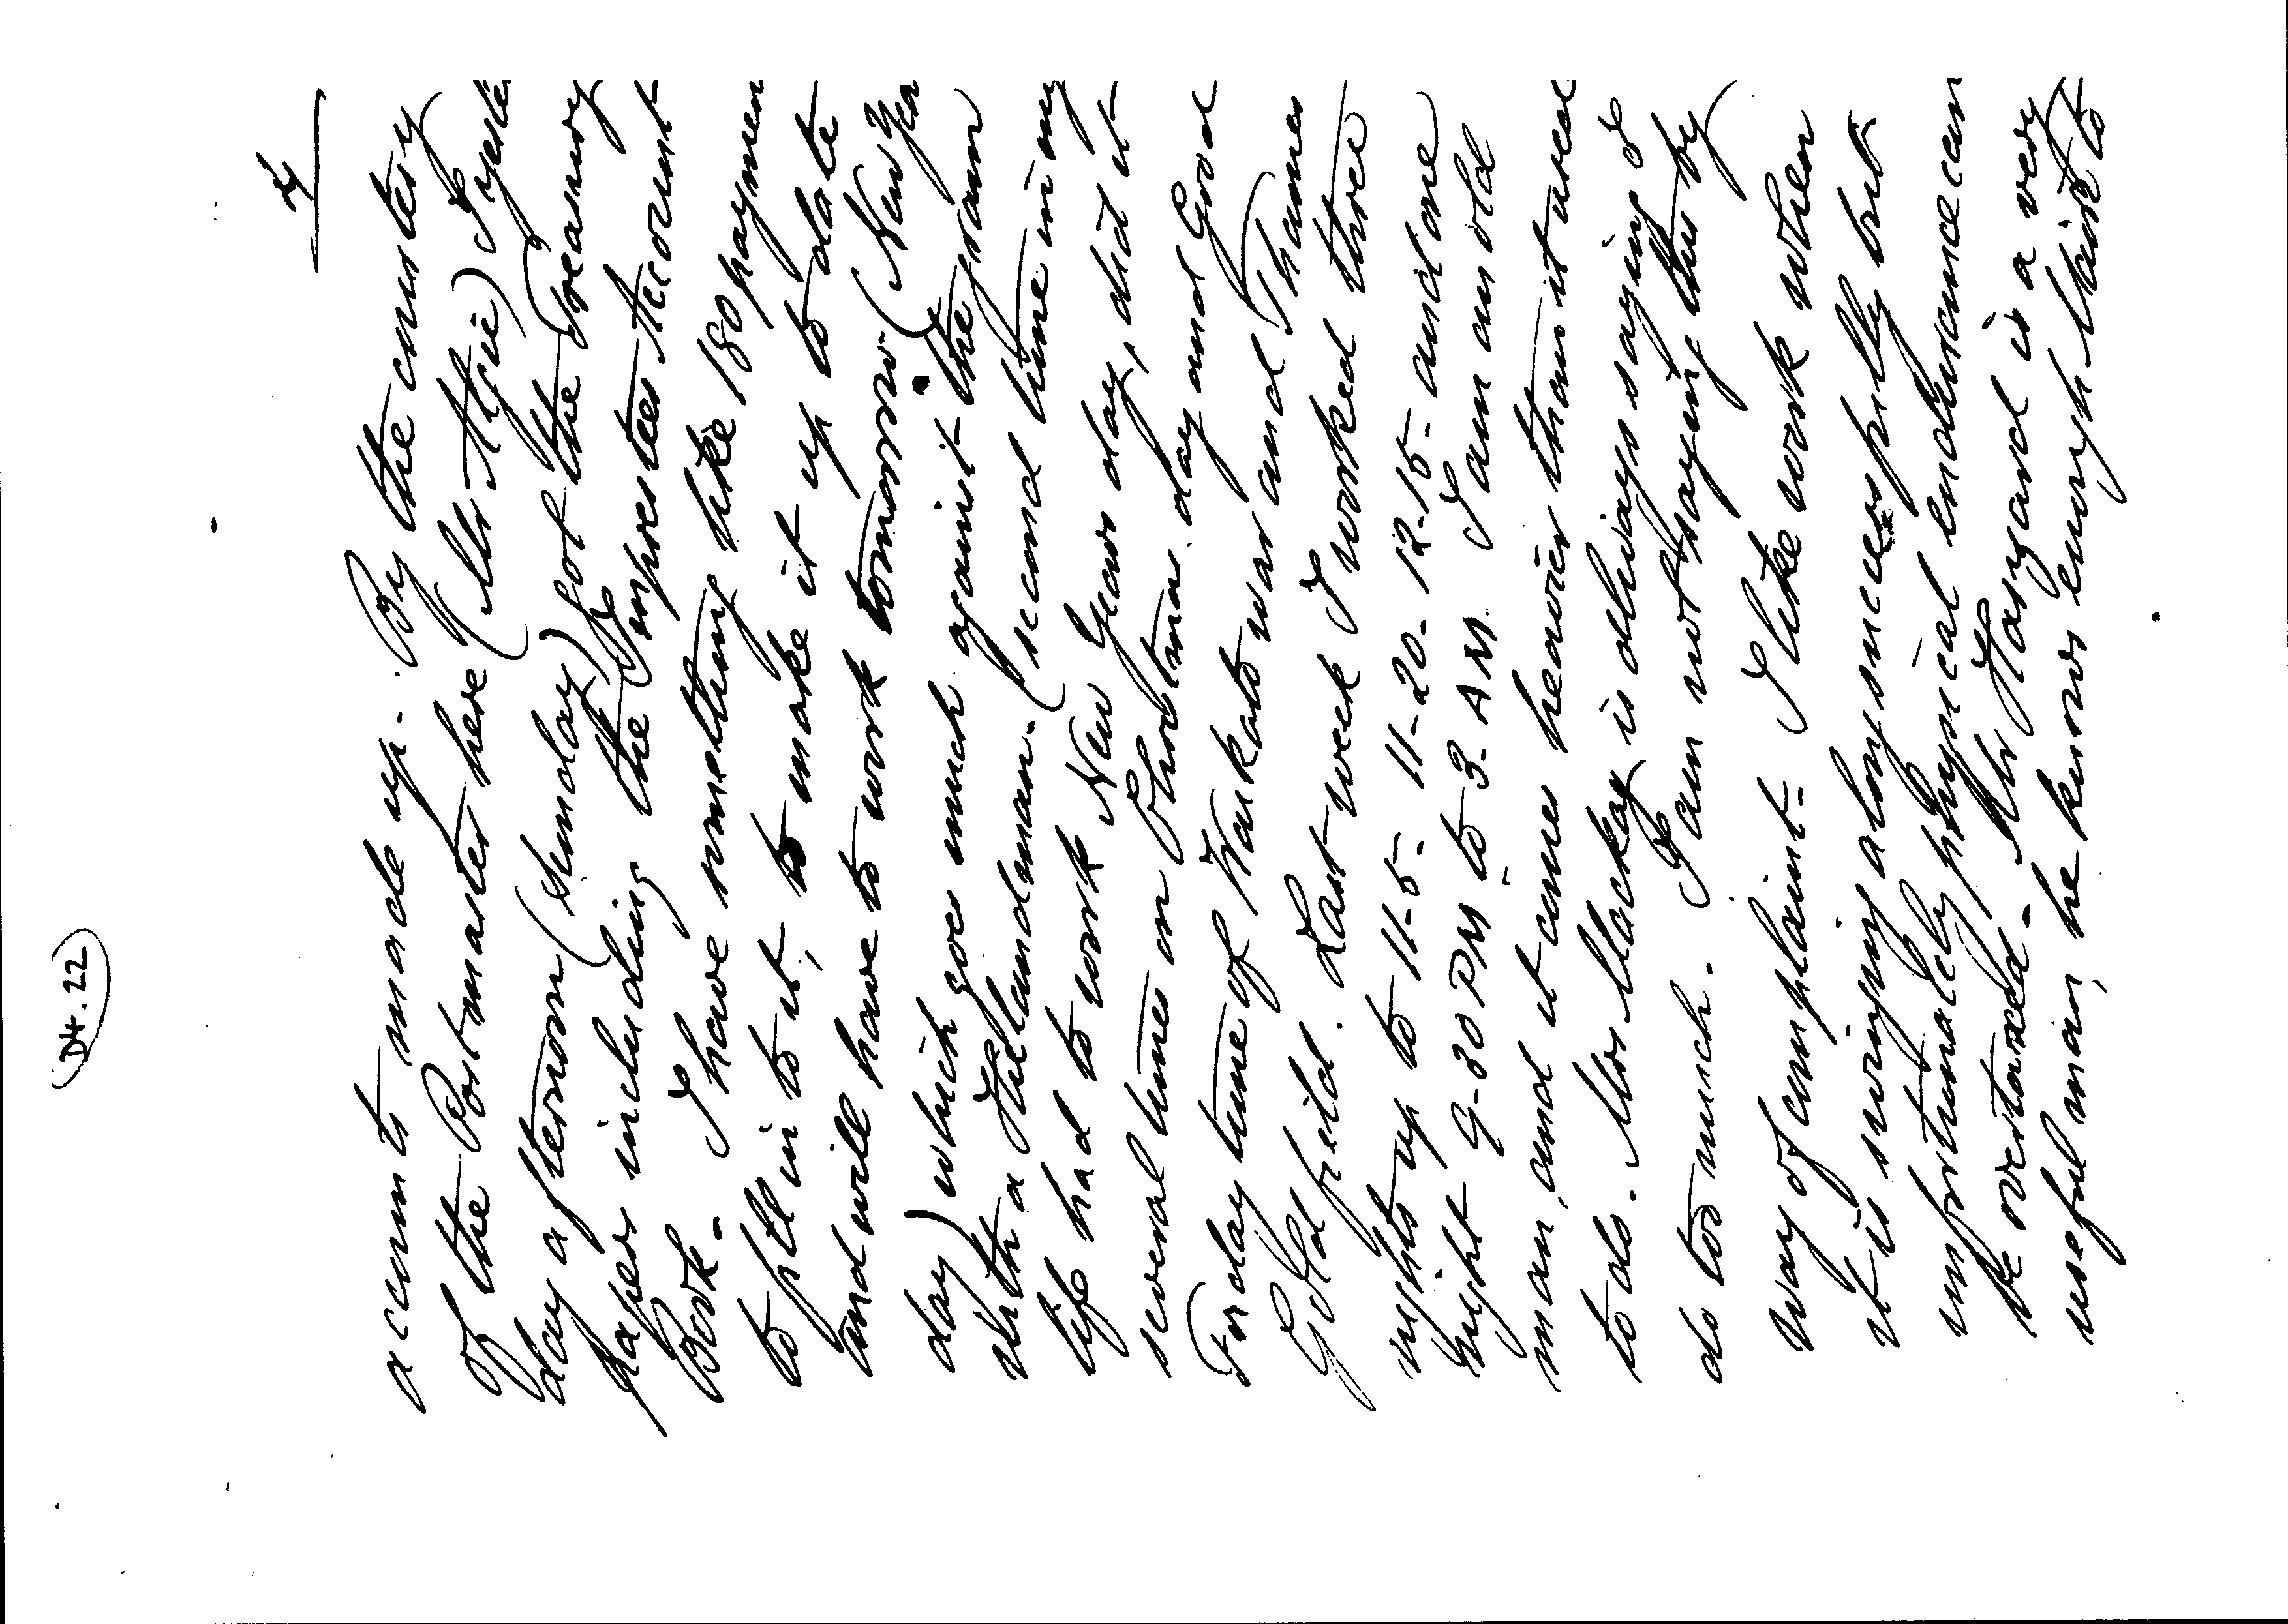 D4.22
4
accounts made up. By the courtesy
of the Postmaster here (Mr Algie) I yeste
day afternoon (Sunday) got the Treasury
paper including the Imprestee's Account
Book. I have something like 180 paymen
to fill in to it, to make it up to date
and will have to work tomorrow (New Yea
day) which goes much against the grain
with a Hielandman. (second time in my
life had to work New Years day, did it
several times on Christmas day and Good
Friday time of Waikato war and Thames
Gold field. Last week I worked three
nights up to 11-5- 11-20- 12-15- and one
night 9-30 PM to 3- AM. I am an old
man, and it comes heavier than it used
to do. Mrs Mackay is allways saying I
do too much. I am not saying this by
way of complaint- I like work when
it is swinging along successfully but
unfortunately physical endurance can
be overtaxed- Mr Hasgard is a very
useful man, he knows enough Maori to